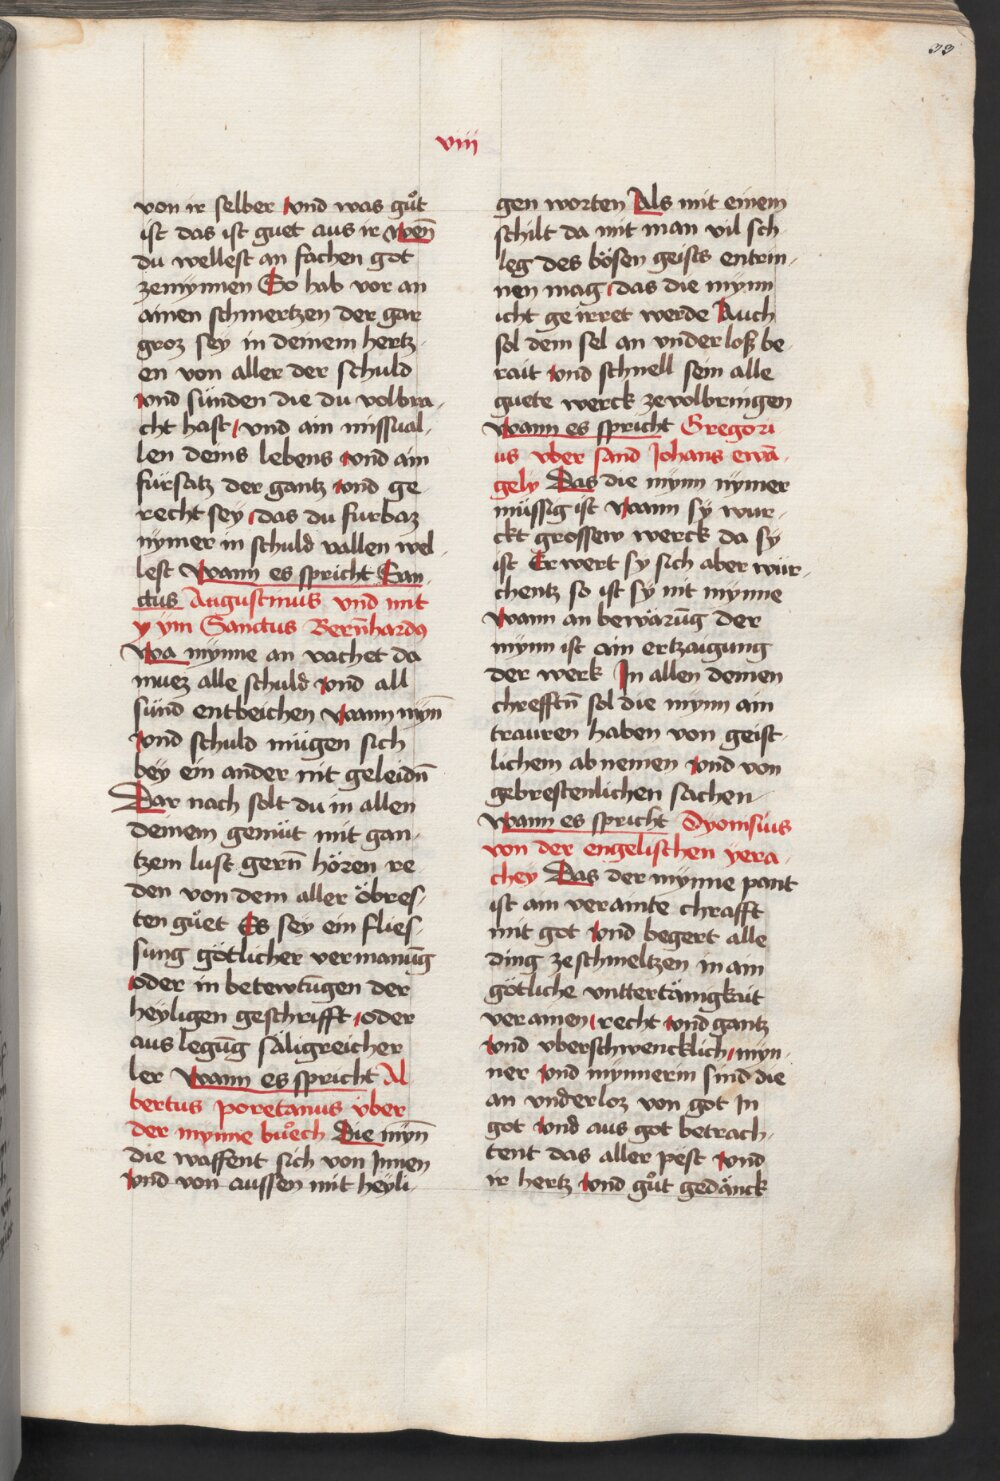 33
viii
von ir selber vnd was gůt
ist das ist guet aus ir Wen̄
du wellest an fachen got
zemynnen So hab vor an
ainen schmertzen der gar
groz sey in deinem hertz
en von aller der schuld
vnd sünden die du volbra
cht hast vnd ain missual
len deins lebens vnd ain
fürsatz der gantz vnd ge
recht sey das du furbaz
nymer in schuld vallen wel
lest Wann es spricht San
ctus Augustinus vnd mit
ym Sanctus Bern̄hardꝯ
Wa mynne an vachet da
muez alle schuld vnd all
sünd entbeichen Wann myn̄
vnd schuld mügen sich
bey ein ander nit geleidn̄
Dar nach solt du in allen
deinem gemüt mit gan
tzem lust gern̄ hören re
den von dem aller öbres
ten gůet Es sey ein flies
sung götlicher vermanūg
oder in betewtūgen der
heyligen geschrifft oder
aus legūg säligreicher
ler Wann es spricht Al
bertus poretanus vber
der mynne bůech Die myn̄
die waffent sich von Innen
vnd von aussen mit heyli
gen worten Als mit einem
schilt da mit man vil sch
leg des bösen geists entrin
nen mag das die mynn
icht ge irret werde Auch
sol dem sel an vnderloß be
rait vnd schnell sein alle
guete werck zevolbringen
Wann es spricht Gregori
us vber sand Johans ewā
gely Das die mynn nymer
müssig ist Wann sy wur
ckt grossew werck da sy
ist Er wert sy sich aber wür
chentz so ist sy nit mynne
Wann an bewärūg der
mynn ist ain ertzaigung
der werk In allen deinen
chrefftn̄ sol die mynn ain
trauren haben von geist
lichem ab nemen vnd von
gebrestenlichen sachen
Wann es spricht Dyonisius
von der engelischen yera
chey Das der mynne pant
ist ain verainte chrafft
mit got vnd begert alle
ding zeschmeltzen in ain
götliche vnttertänigkait
verainen recht vnd gantz
vnd vberschwencklich myn
ner vnd mynnerin sind die
an vnderloz von got In
got vnd aus got betrach
tent das aller pest vnd
ir hertz vnd gůt gedänck